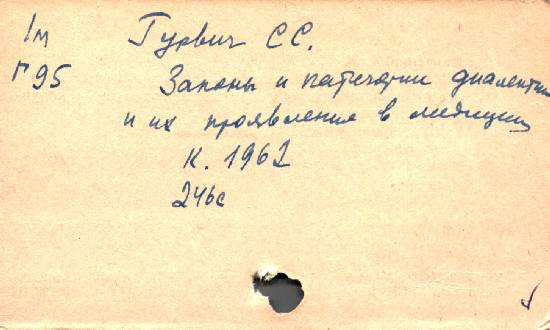 1м Гурвич С С.
Г 95 Законы и категории диалектики
и их проявления в медицине
К. 1962
246с